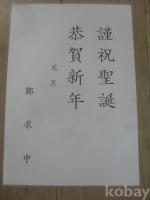 謹祝聖誕
恭賀新年
元旦
鄭求中
kobay